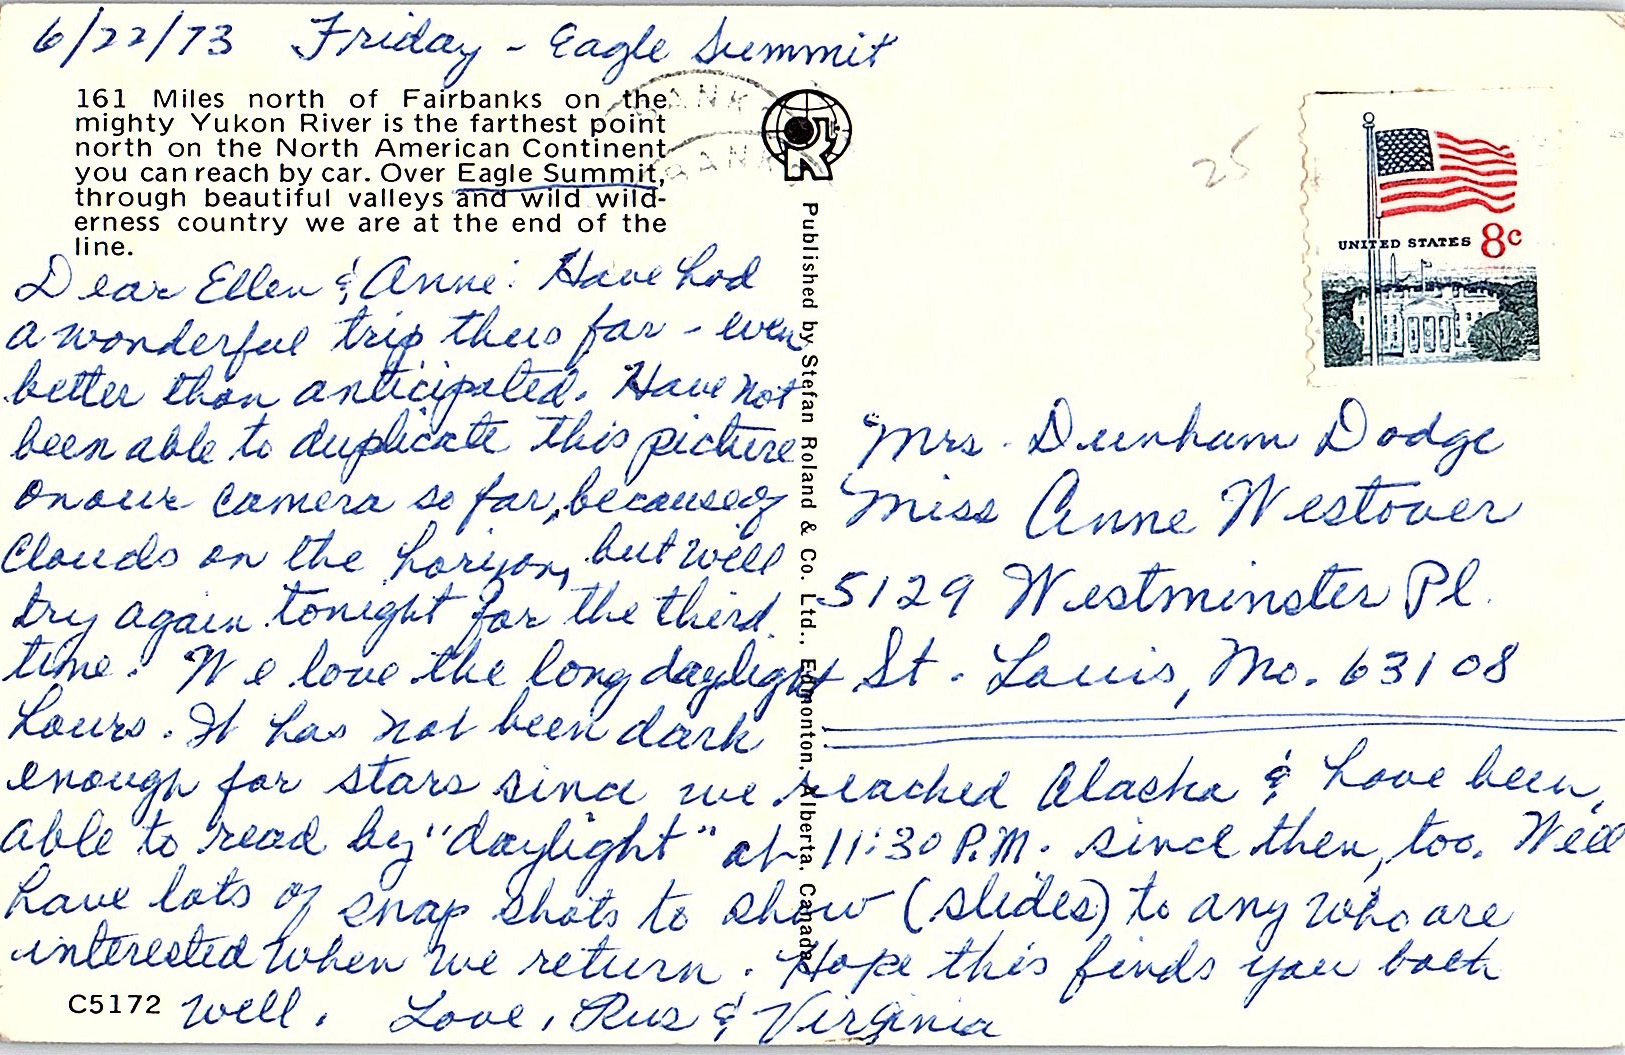 6/22/73 Friday - Eagle Summit
161 Miles north of Fairbanks on the
mighty Yukon River is the farthest point
north on the North American Continent
you can reach by car. Over Eagle Summit,
through beautiful valleys and wild wild-
erness country we are at the end of the
line.
Dear Ellen & Anne: Have had
a wonderful trip thus far - even
better than anticipated. Have not
been able to duplicate this picture
on our camera so far, because of
clouds on the horizon, but will
try again tonight for the third
time. We love the long daylight
hours. It has not been dark
enough for stars since we reached Alaska & have been
able to read by "daylight" at 11:30 P.M. since then, too. Will
have lots of snap shots to show (slides) to any who are
interested when we return. Hope this finds you both
well. Love, Rus & Virginia
C5172
Published by Stefan Roland & Co. Ltd., Edmonton, Alberta, Canada
25
UNITED STATES 8c
Mrs. Dunham Dodge
Miss Anne Westover
5129 Westminster Pl.
St. Louis, Mo. 63108